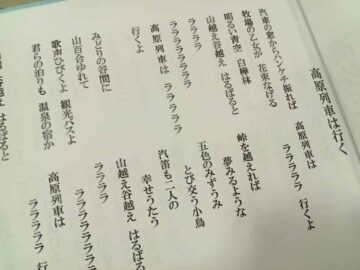 高原列車は行く
汽車の窓からハンケチ振れば
牧場の乙女が 花束なげる
明るい青空 白樺林
山越え谷越え はるばると
ララララ
高原列車は ラララララ
行くよ
みどりの谷間に
山百合ゆれて
歌声ひびくよ 観光バスよ
君らの泊りも 温泉の宿か
山越え谷越え はるばると
高原列車は
ラララララ 行くよ
峠を越えれば
夢みるような
五色のみずうみ
とび交う小鳥
汽笛も二人の
幸せうたう
山越え谷越え はるばる
ララララ
高原列車は
ラララララ 行くよ